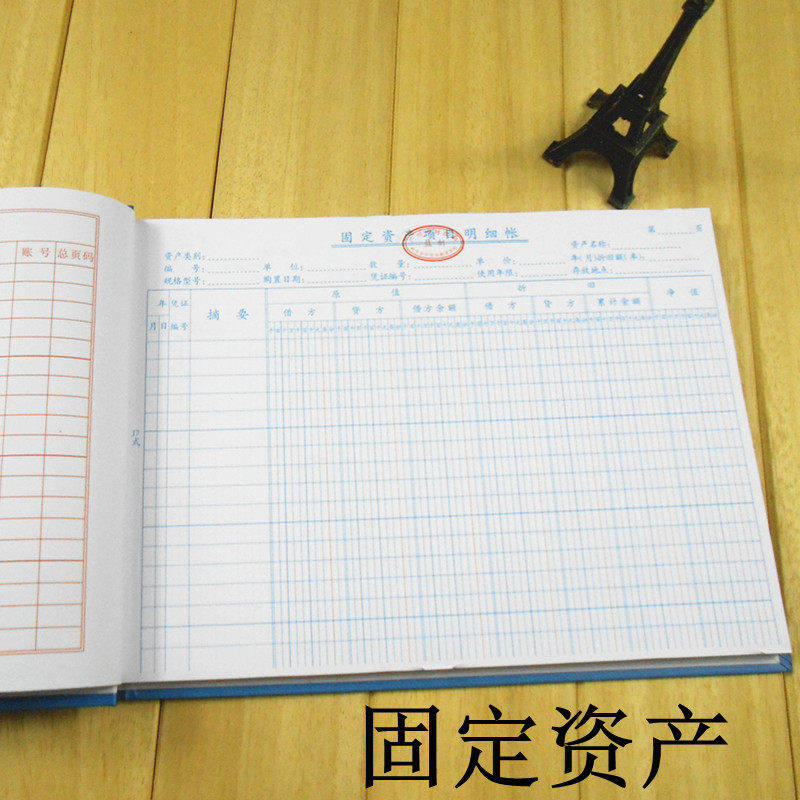 账号 总页码
固定资产项目明细帐
第 页
资产类别: 资产名称:
编 号: 单 位: 数 量: 单 价: 年(月)折旧额(率):
规格型号: 购置日期: 凭证编号: 使用年限: 存放地点:
年 凭证 摘要 原值 折旧 净值
月 日 编号 借方 贷方 借方余额 借方 贷方 累计金额
固定资产